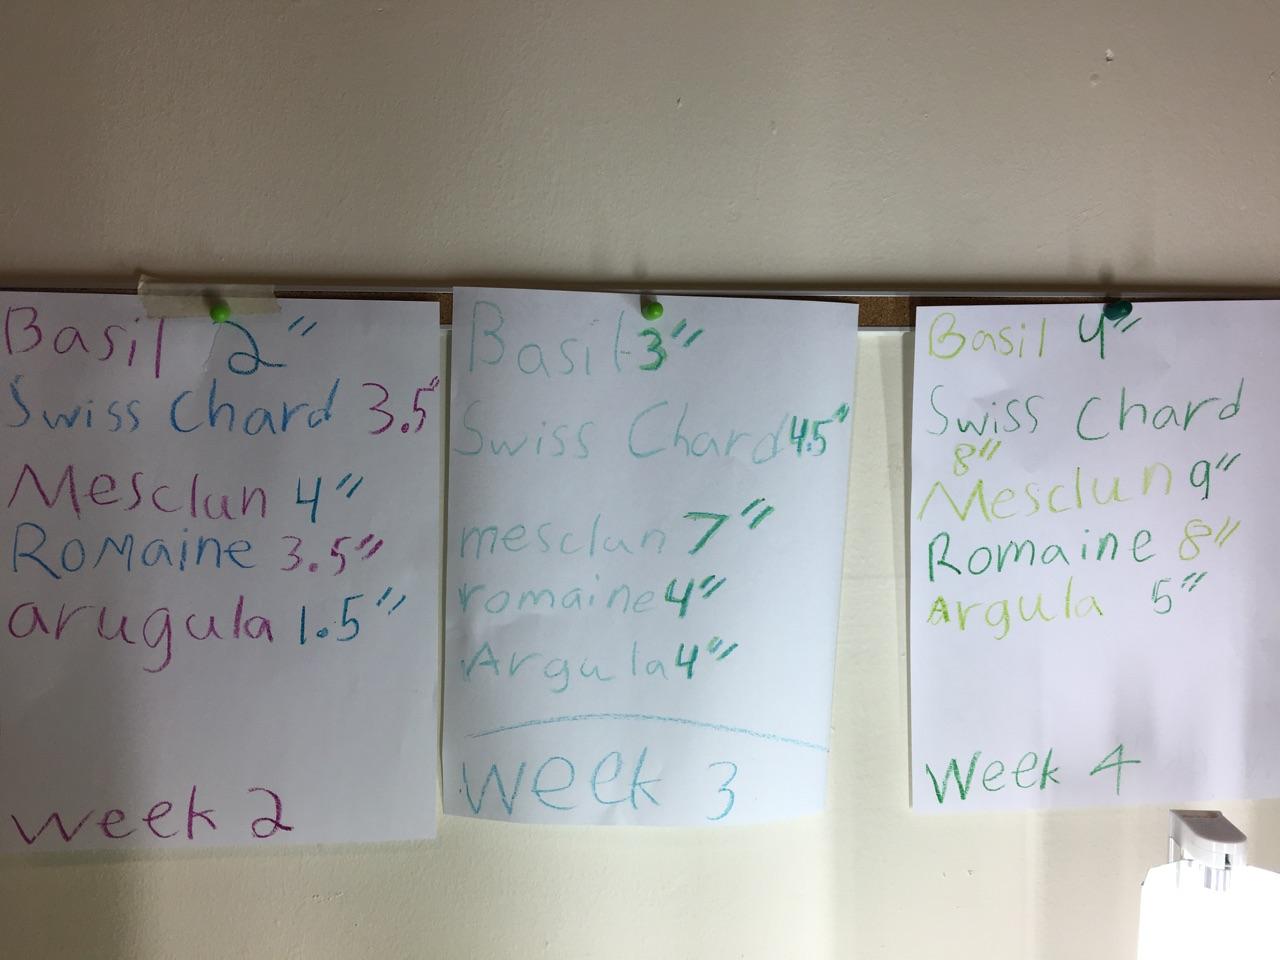 Basil 2"
Swiss Chard 3.5"
Mesclun 4"
Romaine 3.5"
arugula 1.5"
week 2
Basil 3"
Swiss Chard 4.5"
mesclun 7"
romaine 4"
Argula 4"
Week 3
Basil 4"
Swiss Chard
8"
Mesclun 9"
Romaine 8"
Argula 5"
Week 4